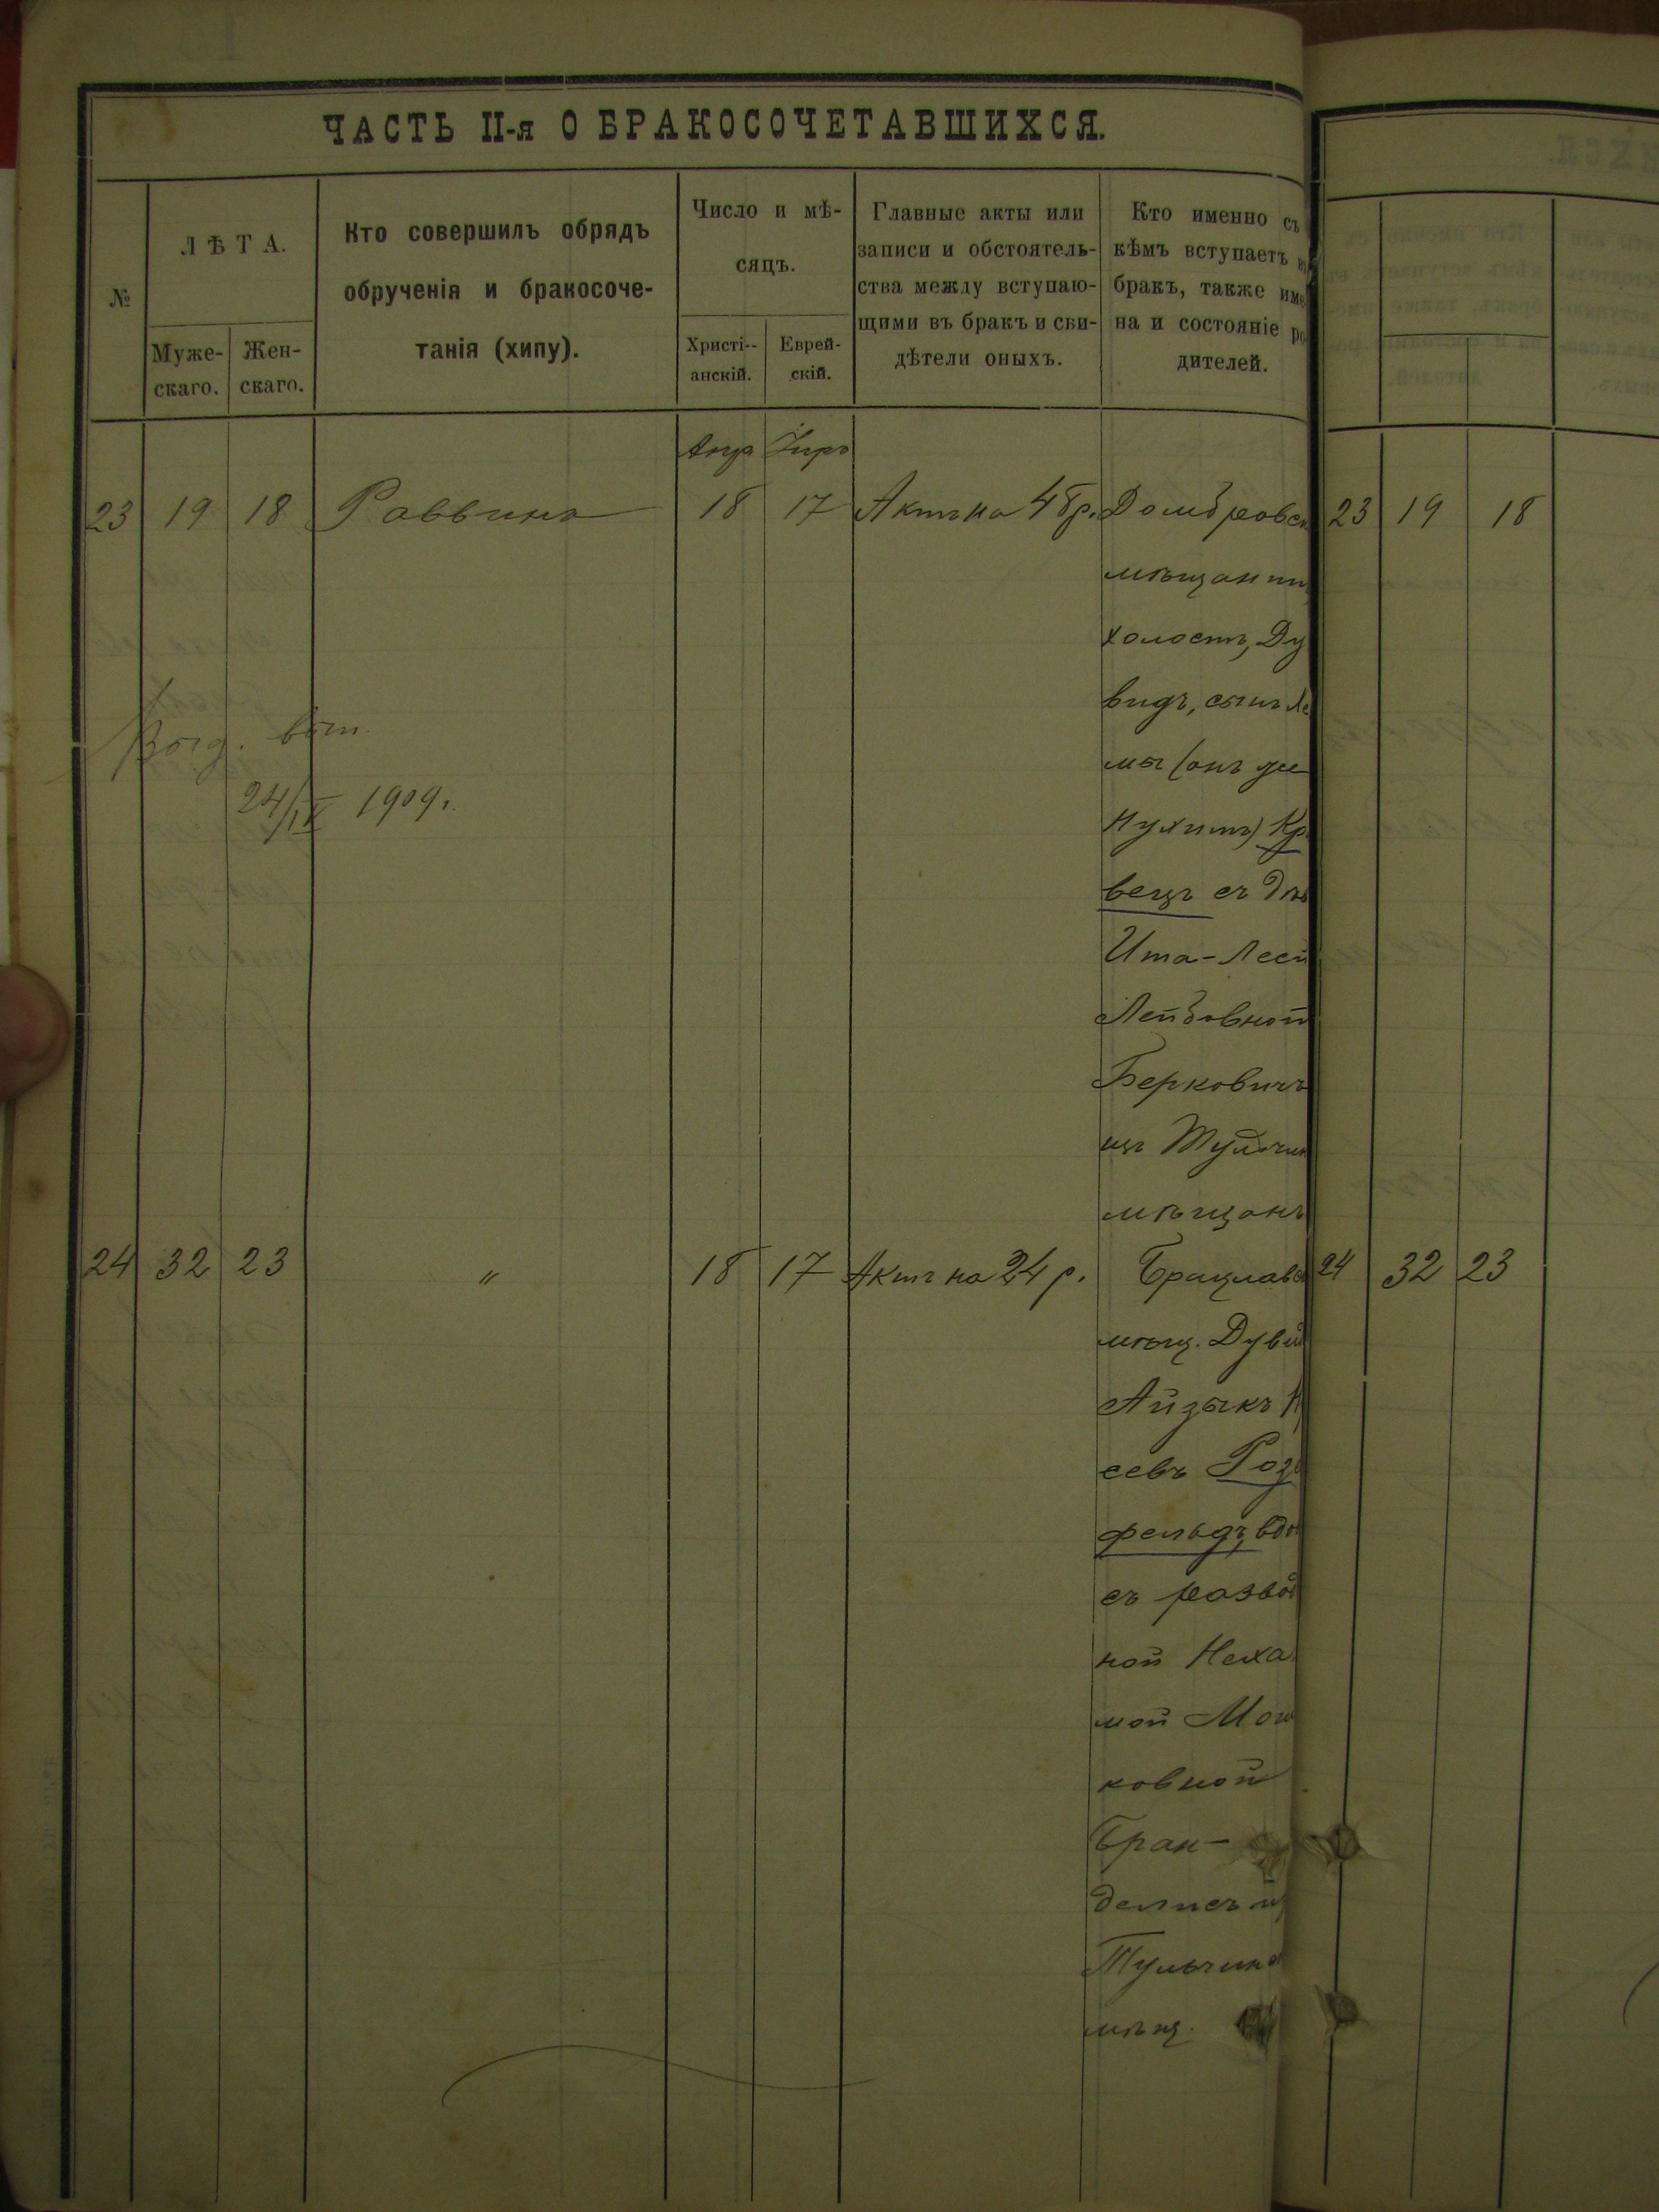 ЧАСТЬ II-я О БРАКОСОЧЕТАВШИХСЯ.
№
ЛѢТА.
Муже-
скаго.
Жен-
скаго.
Кто совершилъ обрядъ
обрученія и бракосоче-
танія (хипу).
Число и мѣ-
сяцъ.
Христі--
анскій.
Еврей-
скій.
Главные акты или
записи и обстоятель-
ства между вступаю-
щими въ бракъ и сви-
дѣтели оныхъ.
Кто именно съ
кѣмъ вступаетъ
бракъ, также име
на и состояніе ро
дителей.
23 19 18 Раввинъ 18 17 Актъ на 48 р. Домбровск
мѣщанин
холостъ, Ду
видъ, сынъ Ле
мы (онъ же
Нухимъ) Кр
вецъ съ дѣв
Ита-Леей
Лейбовной
Берковичъ
изъ Тульчин
мѣщанъ
выт.
24/IX 1909 г.
24 32 23 " 18 17 Актъ на 24 р. Брацлавс
мѣщ. Дувид
Айзыкъ
севъ Роз
фельдъ, вдо
съ развод
ной Неха
мой Мош
ковной
Бран-
делисъ из
Тульчинс
мѣщ.
23 19 18
24 32 23